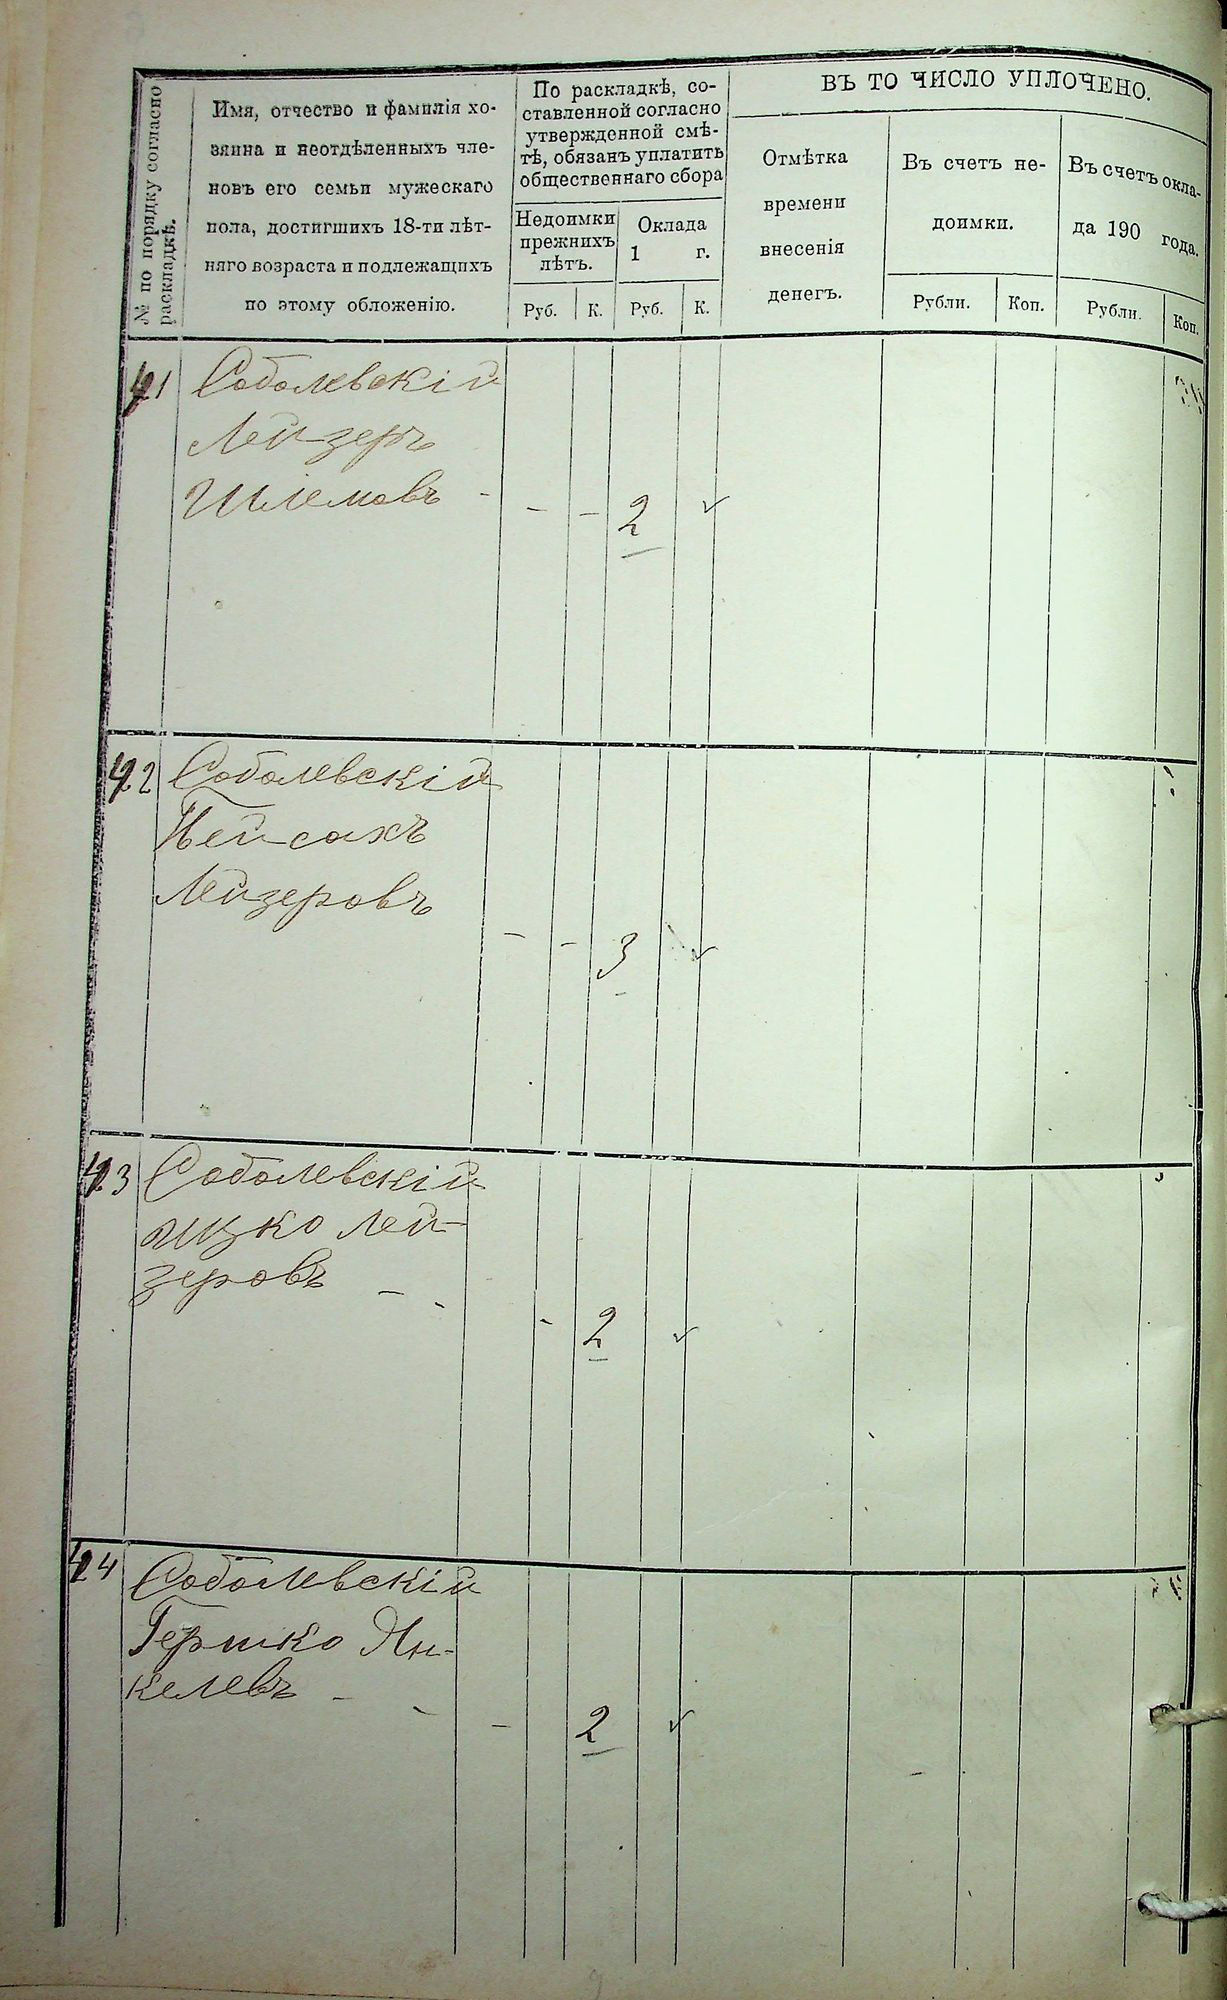 № по порядку согласно
раскладкѣ.
Имя, отчество и фамилія хо-
зяина и неотдѣленныхъ чле-
новъ его семьи мужескаго
пола, достигшихъ 18-ти лѣт-
няго возраста и подлежащихъ
по этому обложенію.
По раскладкѣ, со-
ставленной согласно
утвержденной смѣ-
тѣ, обязанъ уплатить
общественнаго сбора
Недоимки
прежнихъ
лѣтъ.
Оклада
1 г.
Руб. К. Руб. К.
ВЪ ТО ЧИСЛО УПЛОЧЕНО.
Отмѣтка
времени
внесенія
денегъ.
Въ счетъ не-
доимки.
Въ счетъ окла-
да 190 года.
Рубли. Коп. Рубли. Коп.
Соболевскій
Лейзеръ
Шлемовъ -
- - 2 ✓
Соболевскій
Пейсахъ
Лейзеровъ
- - 3 ✓
Соболевскій
Ицко Лей-
зеровъ - -
- 2 ✓
Соболевскій
Гершко Ян-
келевъ - -
- 2 ✓